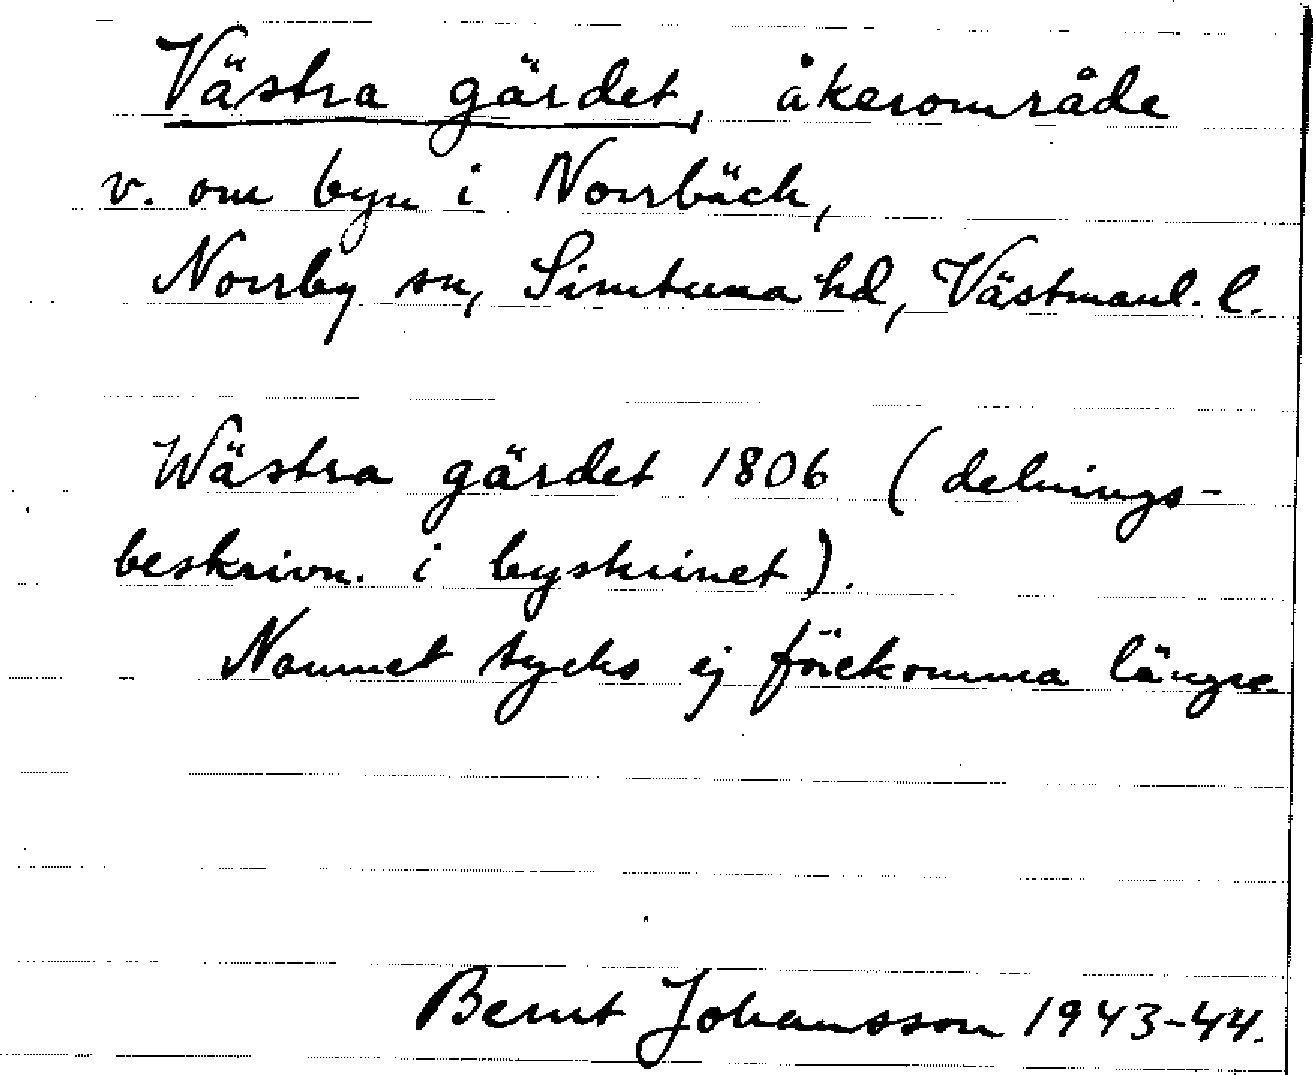 Västra gärdet, åkerområde
v. om byn i Norrbäck,
Norrby sn, Simtuna hd, Västmanl. l.
Wästra gärdet 1806 (delnings-
beskrivn. i byskrinet).
Namnet tycks ej förekomma längre
Bernt Johansson 1943-44.